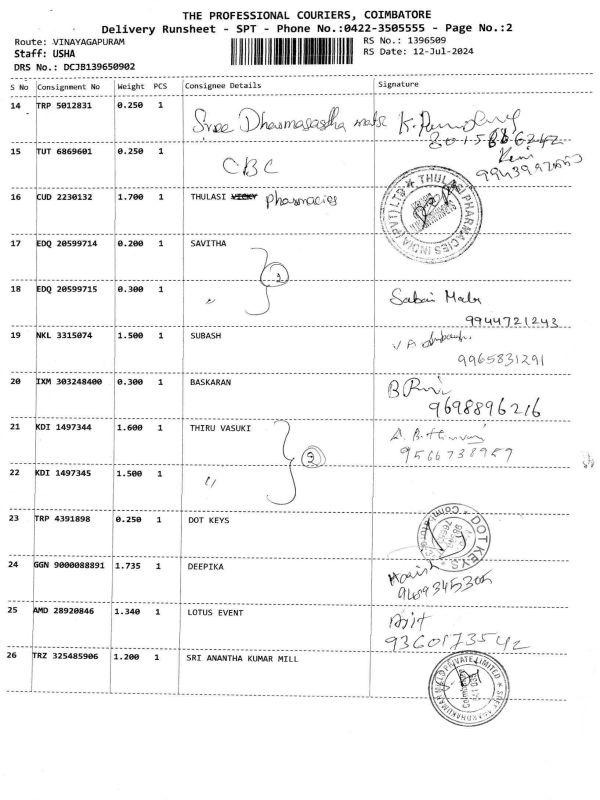 THE PROFESSIONAL COURIERS, COIMBATORE
Delivery Runsheet - SPT - Phone No.:0422-3505555 - Page No.:2
Route: VINAYAGAPURAM RS No.: 1396509
Staff: USHA RS Date: 12-Jul-2024
DRS No.: DCJB139650902
S No Consignment No Weight PCS Consignee Details Signature
14 TRP 5012831 0.250 1 Sree Dharmasastha
15 TUT 6869601 0.250 1 CBC
16 CUD 2230132 1.700 1 THULASI VICKY pharmacies
THULASI PHARMACIES INDIA (PVT) LTD
17 EDQ 20599714 0.200 1 SAVITHA
2
18 EDQ 20599715 0.300 1 〃 Sabari
9944721243
19 NKL 3315074 1.500 1 SUBASH
9965831291
20 IXM 303248400 0.300 1 BASKARAN
9698896216
21 KDI 1497344 1.600 1 THIRU VASUKI
9566738957
2
22 KDI 1497345 1.500 1 〃
23 TRP 4391898 0.250 1 DOT KEYS
DOT KEYS
24 GGN 9000088891 1.735 1 DEEPIKA Harish
25 AMD 28920846 1.340 1 LOTUS EVENT Ajit
9360173542
26 TRZ 325485906 1.200 1 SRI ANANTHA KUMAR MILL
PRIVATE LIMITED